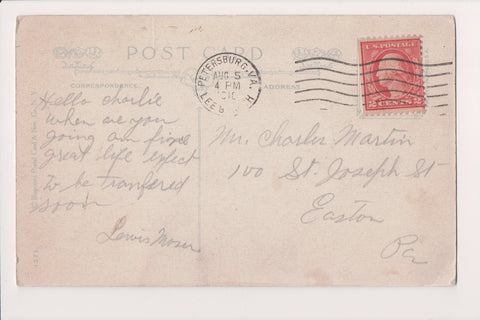 POST CARD
CORRESPONDENCE
ADDRESS
PETERSBURG, VA.
AUG 5
4 PM
LEE
H
U.S. POSTAGE
2 CENTS 2
Hello charlie
when are you
going am fine
great life expect
to be tranfered
soon
Lewis Moser
Mr. Charles Martin
100 St. Joseph St
Easton
Pa